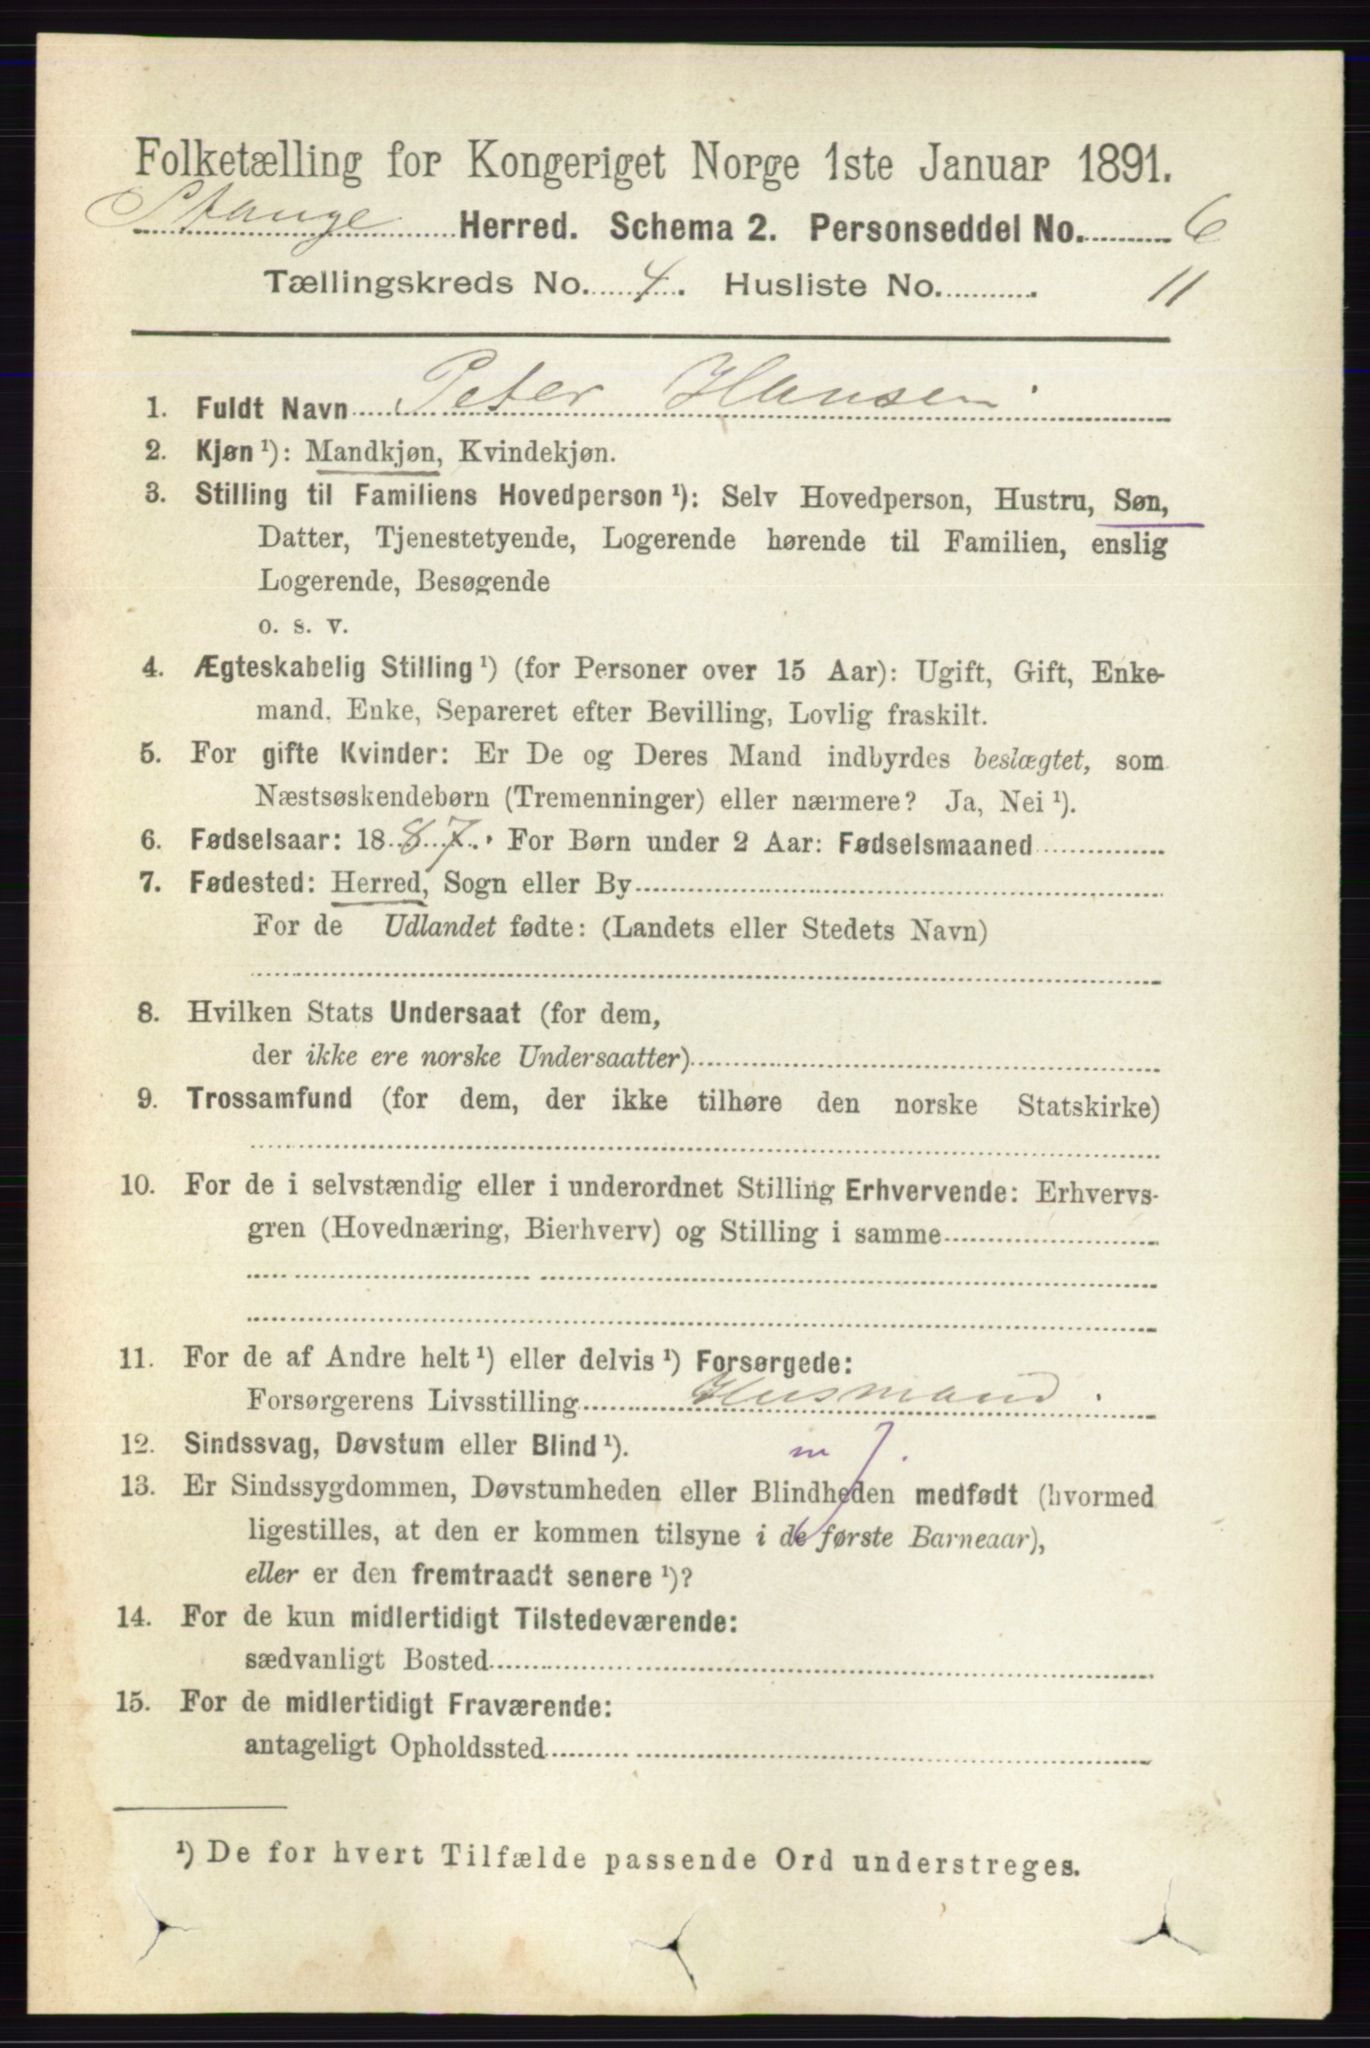 Folketælling for Kongeriget Norge 1ste Januar 1891.
Stange Herred. Schema 2. Personseddel No. 6
Tællingskreds No. 4. Husliste No. 11
1. Fuldt Navn Peter Hansen
2. Kjøn ¹): Mandkjøn, Kvindekjøn.
3. Stilling til Familiens Hovedperson ¹): Selv Hovedperson, Hustru, Søn,
Datter, Tjenestetyende, Logerende hørende til Familien, enslig
Logerende, Besøgende
o. s. v.
4. Ægteskabelig Stilling ¹) (for Personer over 15 Aar): Ugift, Gift, Enke-
mand, Enke, Separeret efter Bevilling, Lovlig fraskilt.
5. For gifte Kvinder: Er De og Deres Mand indbyrdes beslægtet, som
Næstsøskendebørn (Tremenninger) eller nærmere? Ja, Nei ¹).
6. Fødselsaar: 1887. For Børn under 2 Aar: Fødselsmaaned
7. Fødested: Herred, Sogn eller By
For de Udlandet fødte: (Landets eller Stedets Navn)
8. Hvilken Stats Undersaat (for dem,
der ikke ere norske Undersaatter)
9. Trossamfund (for dem, der ikke tilhøre den norske Statskirke)
10. For de i selvstændig eller i underordnet Stilling Erhvervende: Erhvervs-
gren (Hovednæring, Bierhverv) og Stilling i samme
11. For de af Andre helt ¹) eller delvis ¹) Forsørgede:
Forsørgerens Livsstilling Husmand.
12. Sindssvag, Døvstum eller Blind ¹).
13. Er Sindssygdommen, Døvstumheden eller Blindheden medfødt (hvormed
ligestilles, at den er kommen tilsyne i de første Barneaar),
eller er den fremtraadt senere ¹)?
14. For de kun midlertidigt Tilstedeværende:
sædvanligt Bosted
15. For de midlertidigt Fraværende:
antageligt Opholdssted
¹) De for hvert Tilfælde passende Ord understreges.